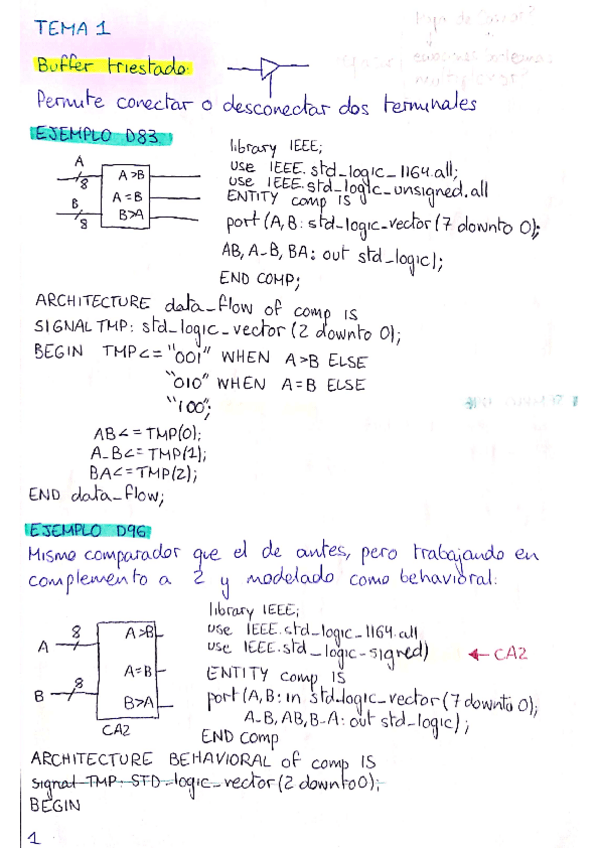 TEMA 1
Buffer triestado:
Permite conectar o desconectar dos terminales
EJEMPLO D83
A
8
B
8
A>B
A=B
B>A
library IEEE;
use IEEE.std_logic_1164.all;
use IEEE.std_logic_unsigned.all
ENTITY comp IS
port(A,B: std_logic_vector(7 downto 0);
AB, A_B, BA: out std_logic);
END COMP;
ARCHITECTURE data_flow of comp IS
SIGNAL TMP: std_logic_vector (2 downto 0);
BEGIN TMP<="001" WHEN A>B ELSE
"010" WHEN A=B ELSE
"100";
AB<=TMP(0);
A_B<=TMP(1);
BA<=TMP(2);
END data_flow;
EJEMPLO D96
Mismo comparador que el de antes, pero trabajando en
complemento a 2 y modelado como behavioral:
A
8
B
8
A>B
A=B
B>A
CA2
library IEEE;
use IEEE.std_logic_1164.all
use IEEE.std_logic-signed) ← CA2
ENTITY comp IS
port(A,B: in std_logic_vector(7 downto 0);
A-B, AB, B-A: out std_logic);
END comp
ARCHITECTURE BEHAVIORAL of comp IS
signal TMP: STD_logic_vector(2 downto 0);
BEGIN
1